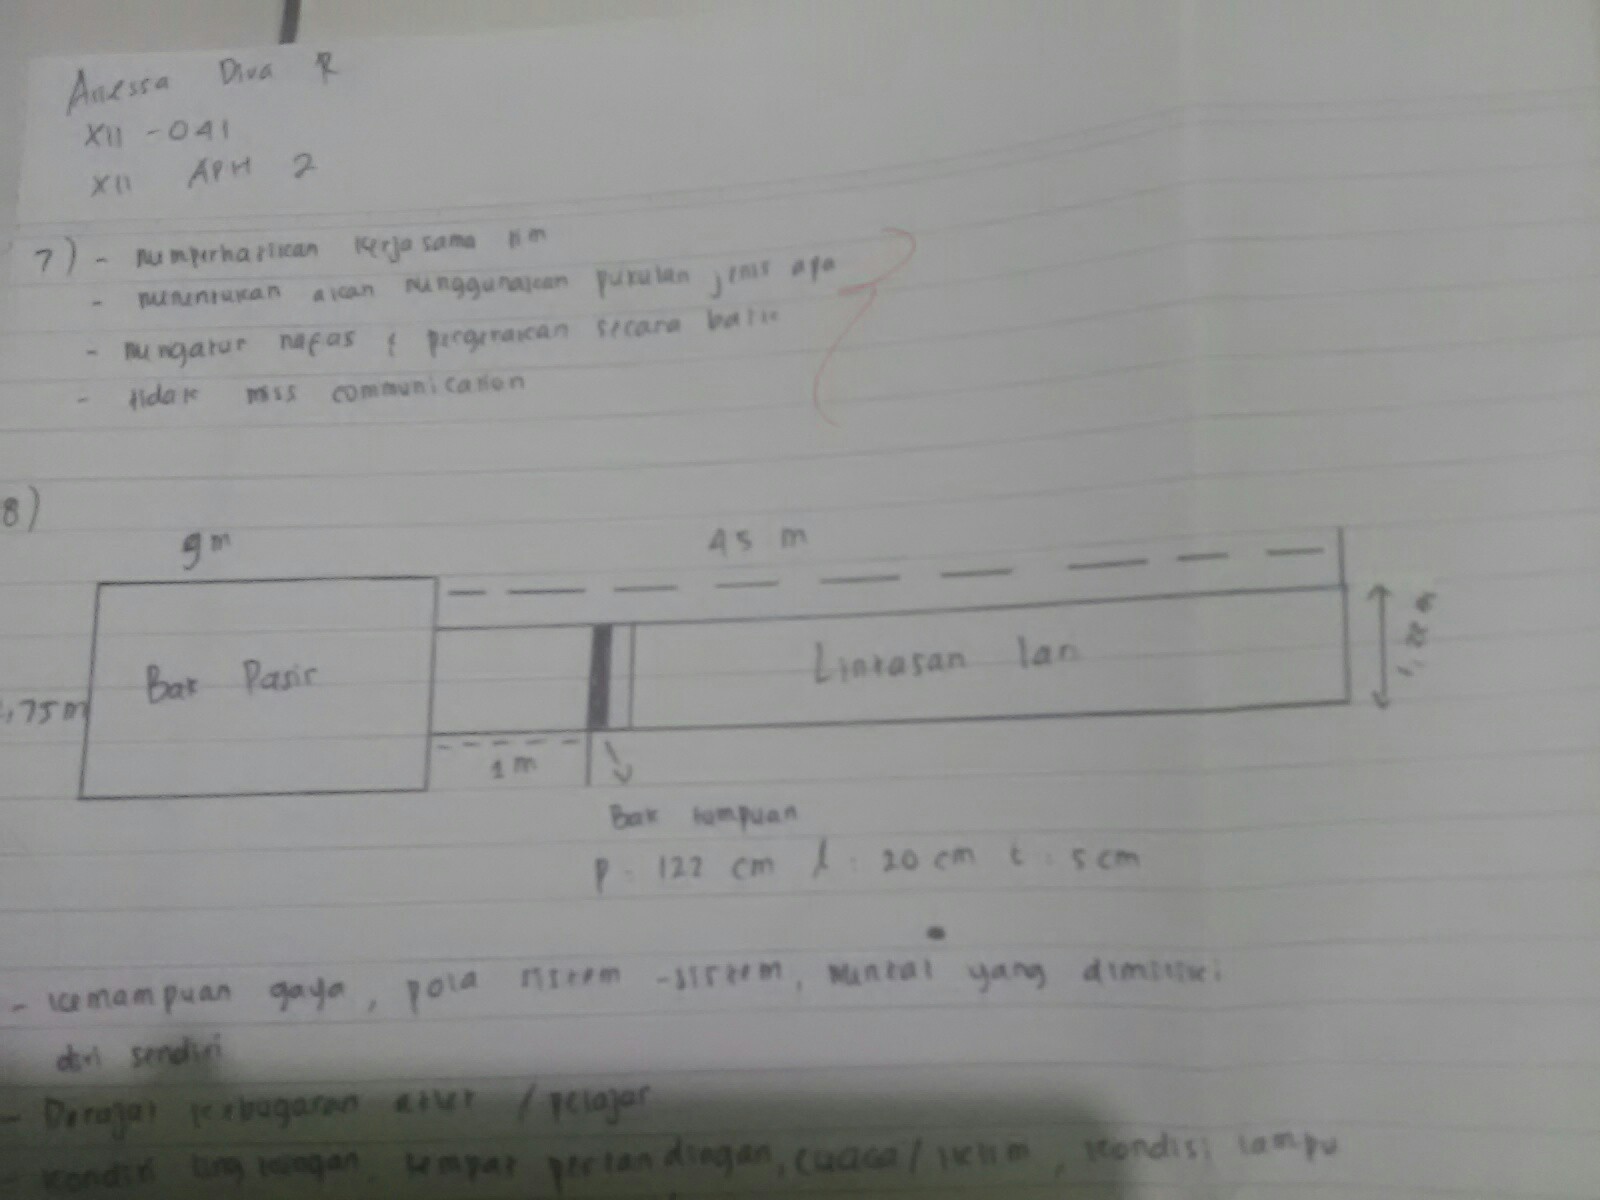 Anessa Diva R
XII - 041
XII APH 2
7) - memperhatikan kerjasama tim
- menentukan akan menggunakan pukulan jenis apa
- mengatur nafas & pergerakan secara baik
- tidak miss communication
8)
9 m
45 m
Bak Pasir
Lintasan lari
,75 m
1 m
1,22 m
Bak tumpuan
p : 122 cm l : 20 cm t : 5 cm
- kemampuan gaya, pola sistem - sistem, mental yang dimiliki
diri sendiri
- Derajat kebugaran atlet / pelajar
- kondisi lingkungan, tempat pertandingan, cuaca / iklim, kondisi lampu